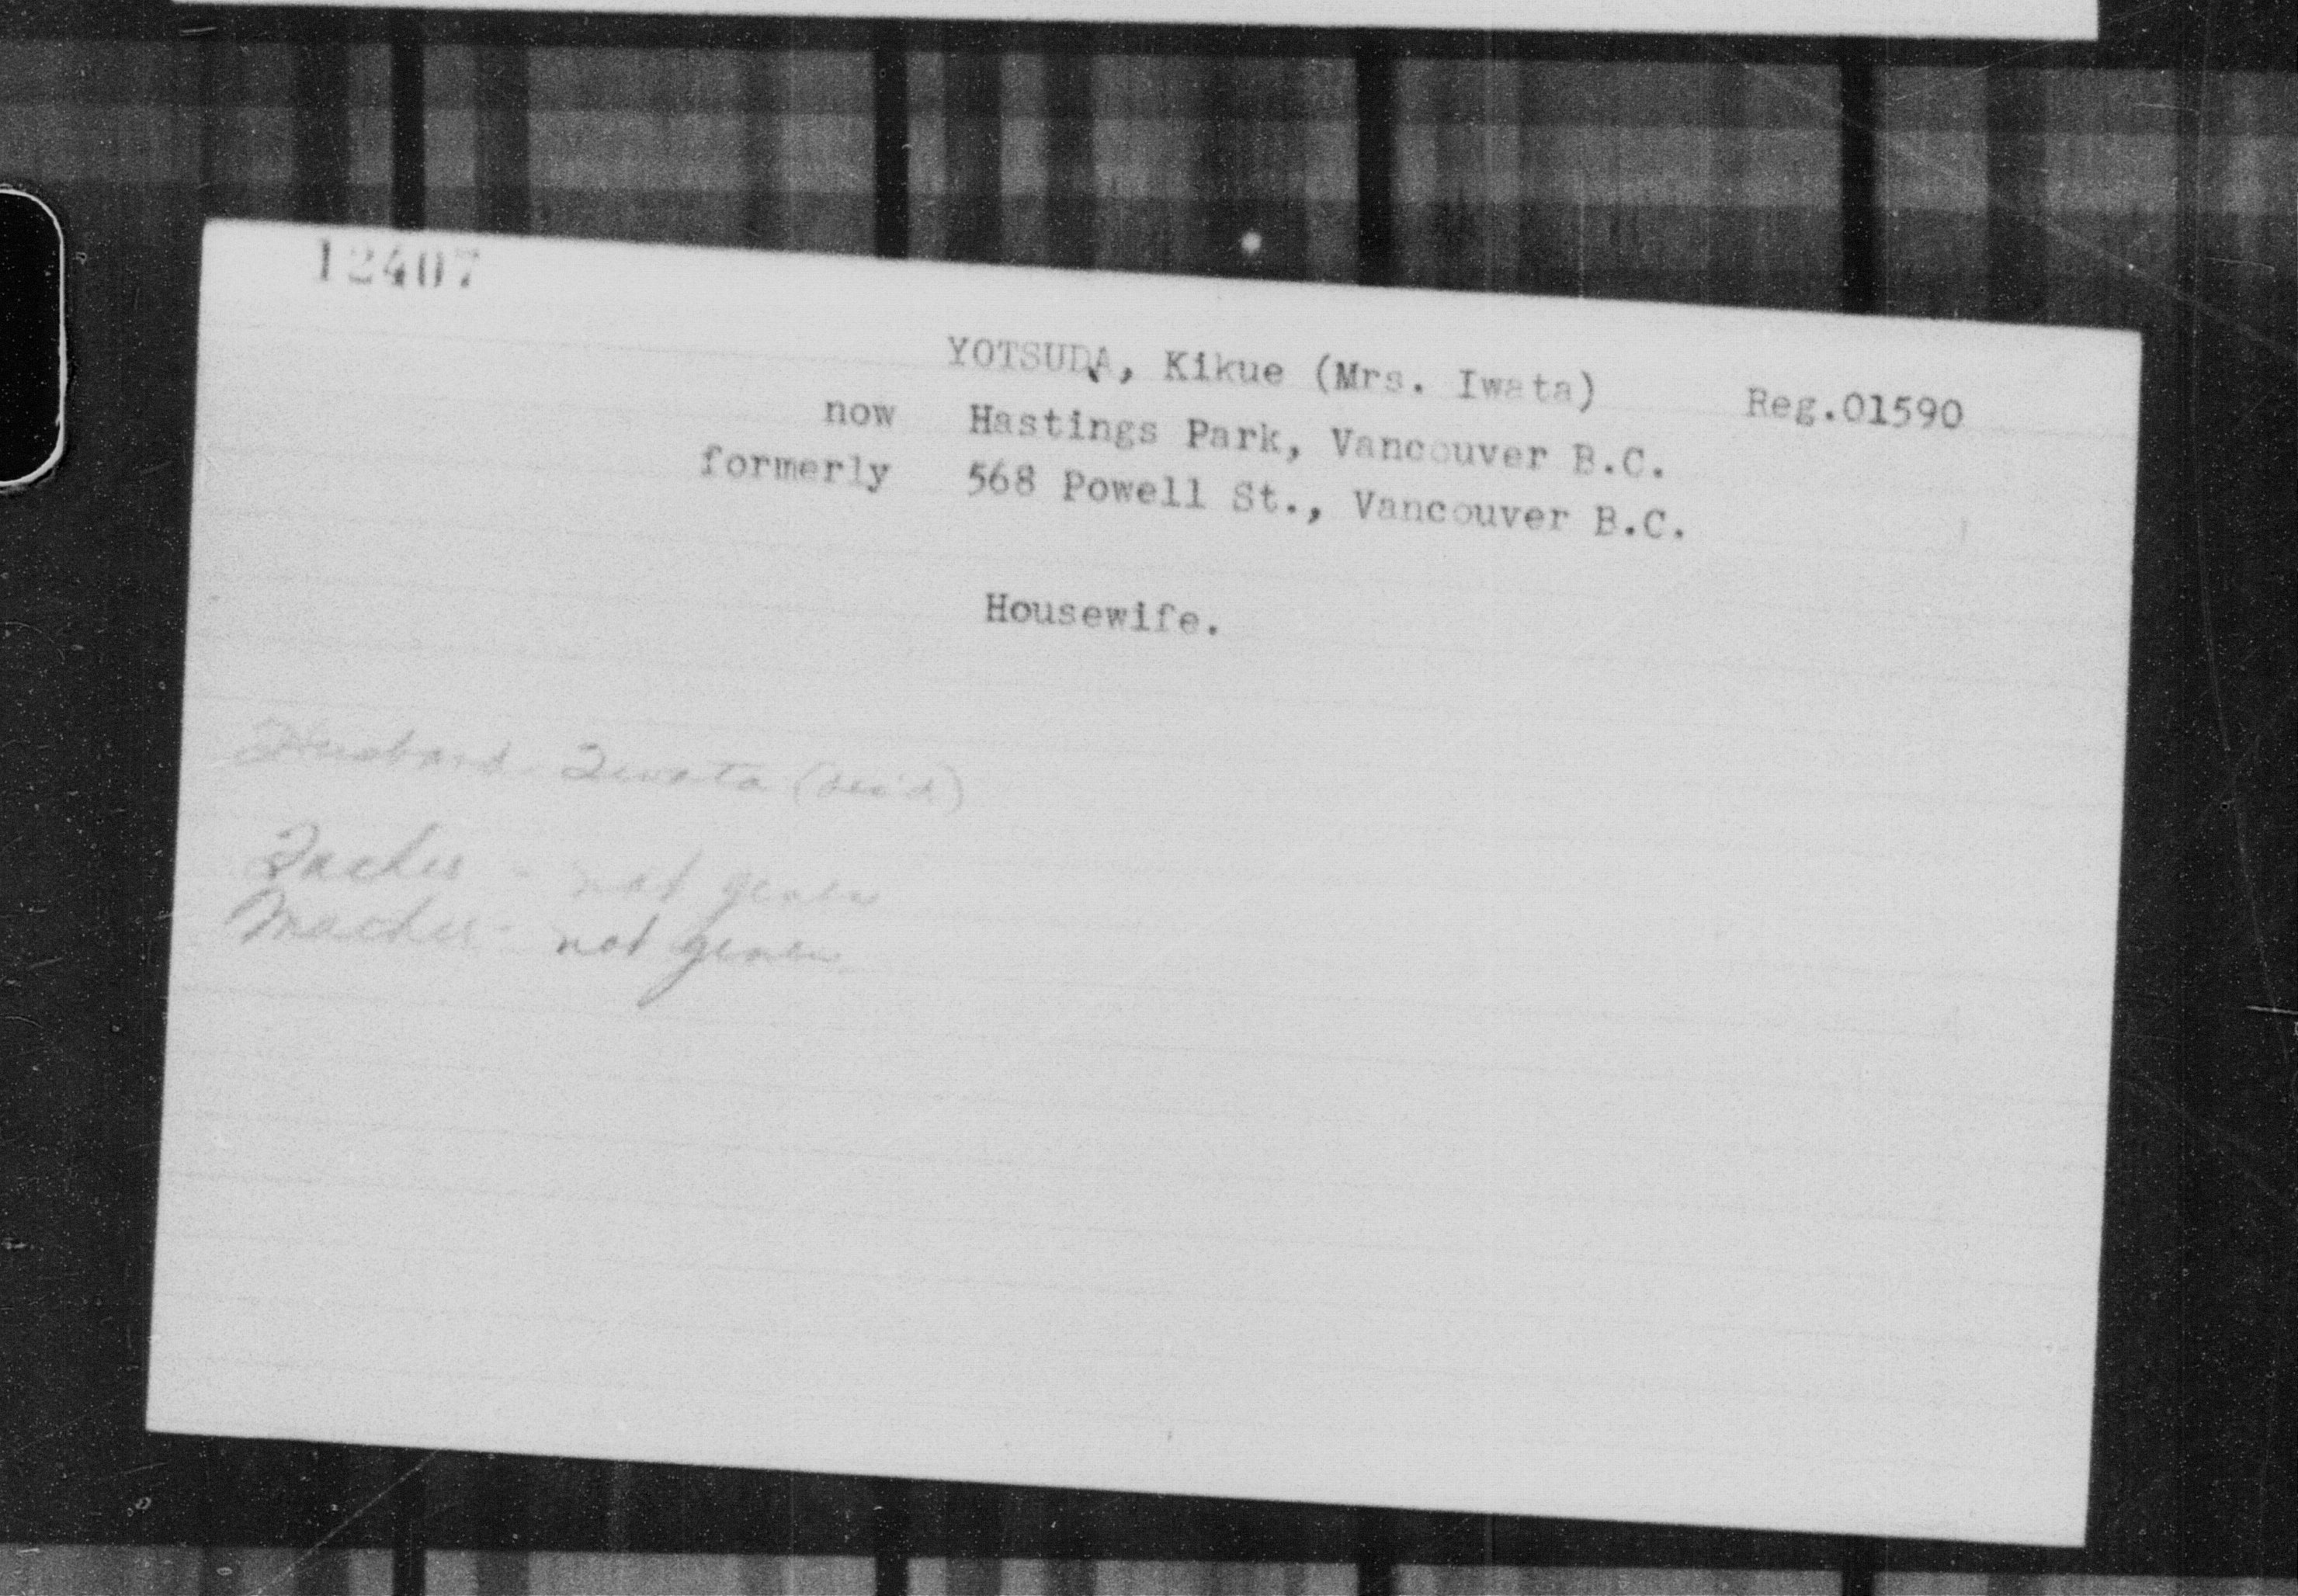 12407
YOTSUDA, Kikue (Mrs. Iwata) Reg.01590
now Hastings Park, Vancouver B.C.
formerly 568 Powell St., Vancouver B.C.
Housewife.
Husband - Iwata (dec'd)
Father - not given
Mother - not given